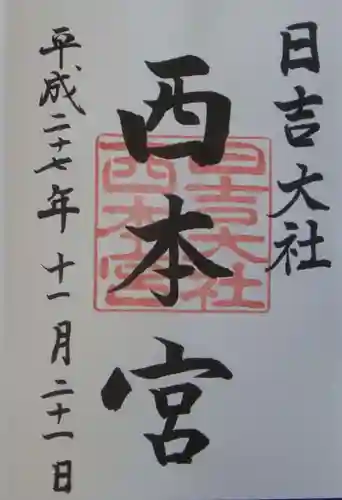 日吉大社
西本宮
平成二十七年十一月二十一日
日吉大社
西本宮